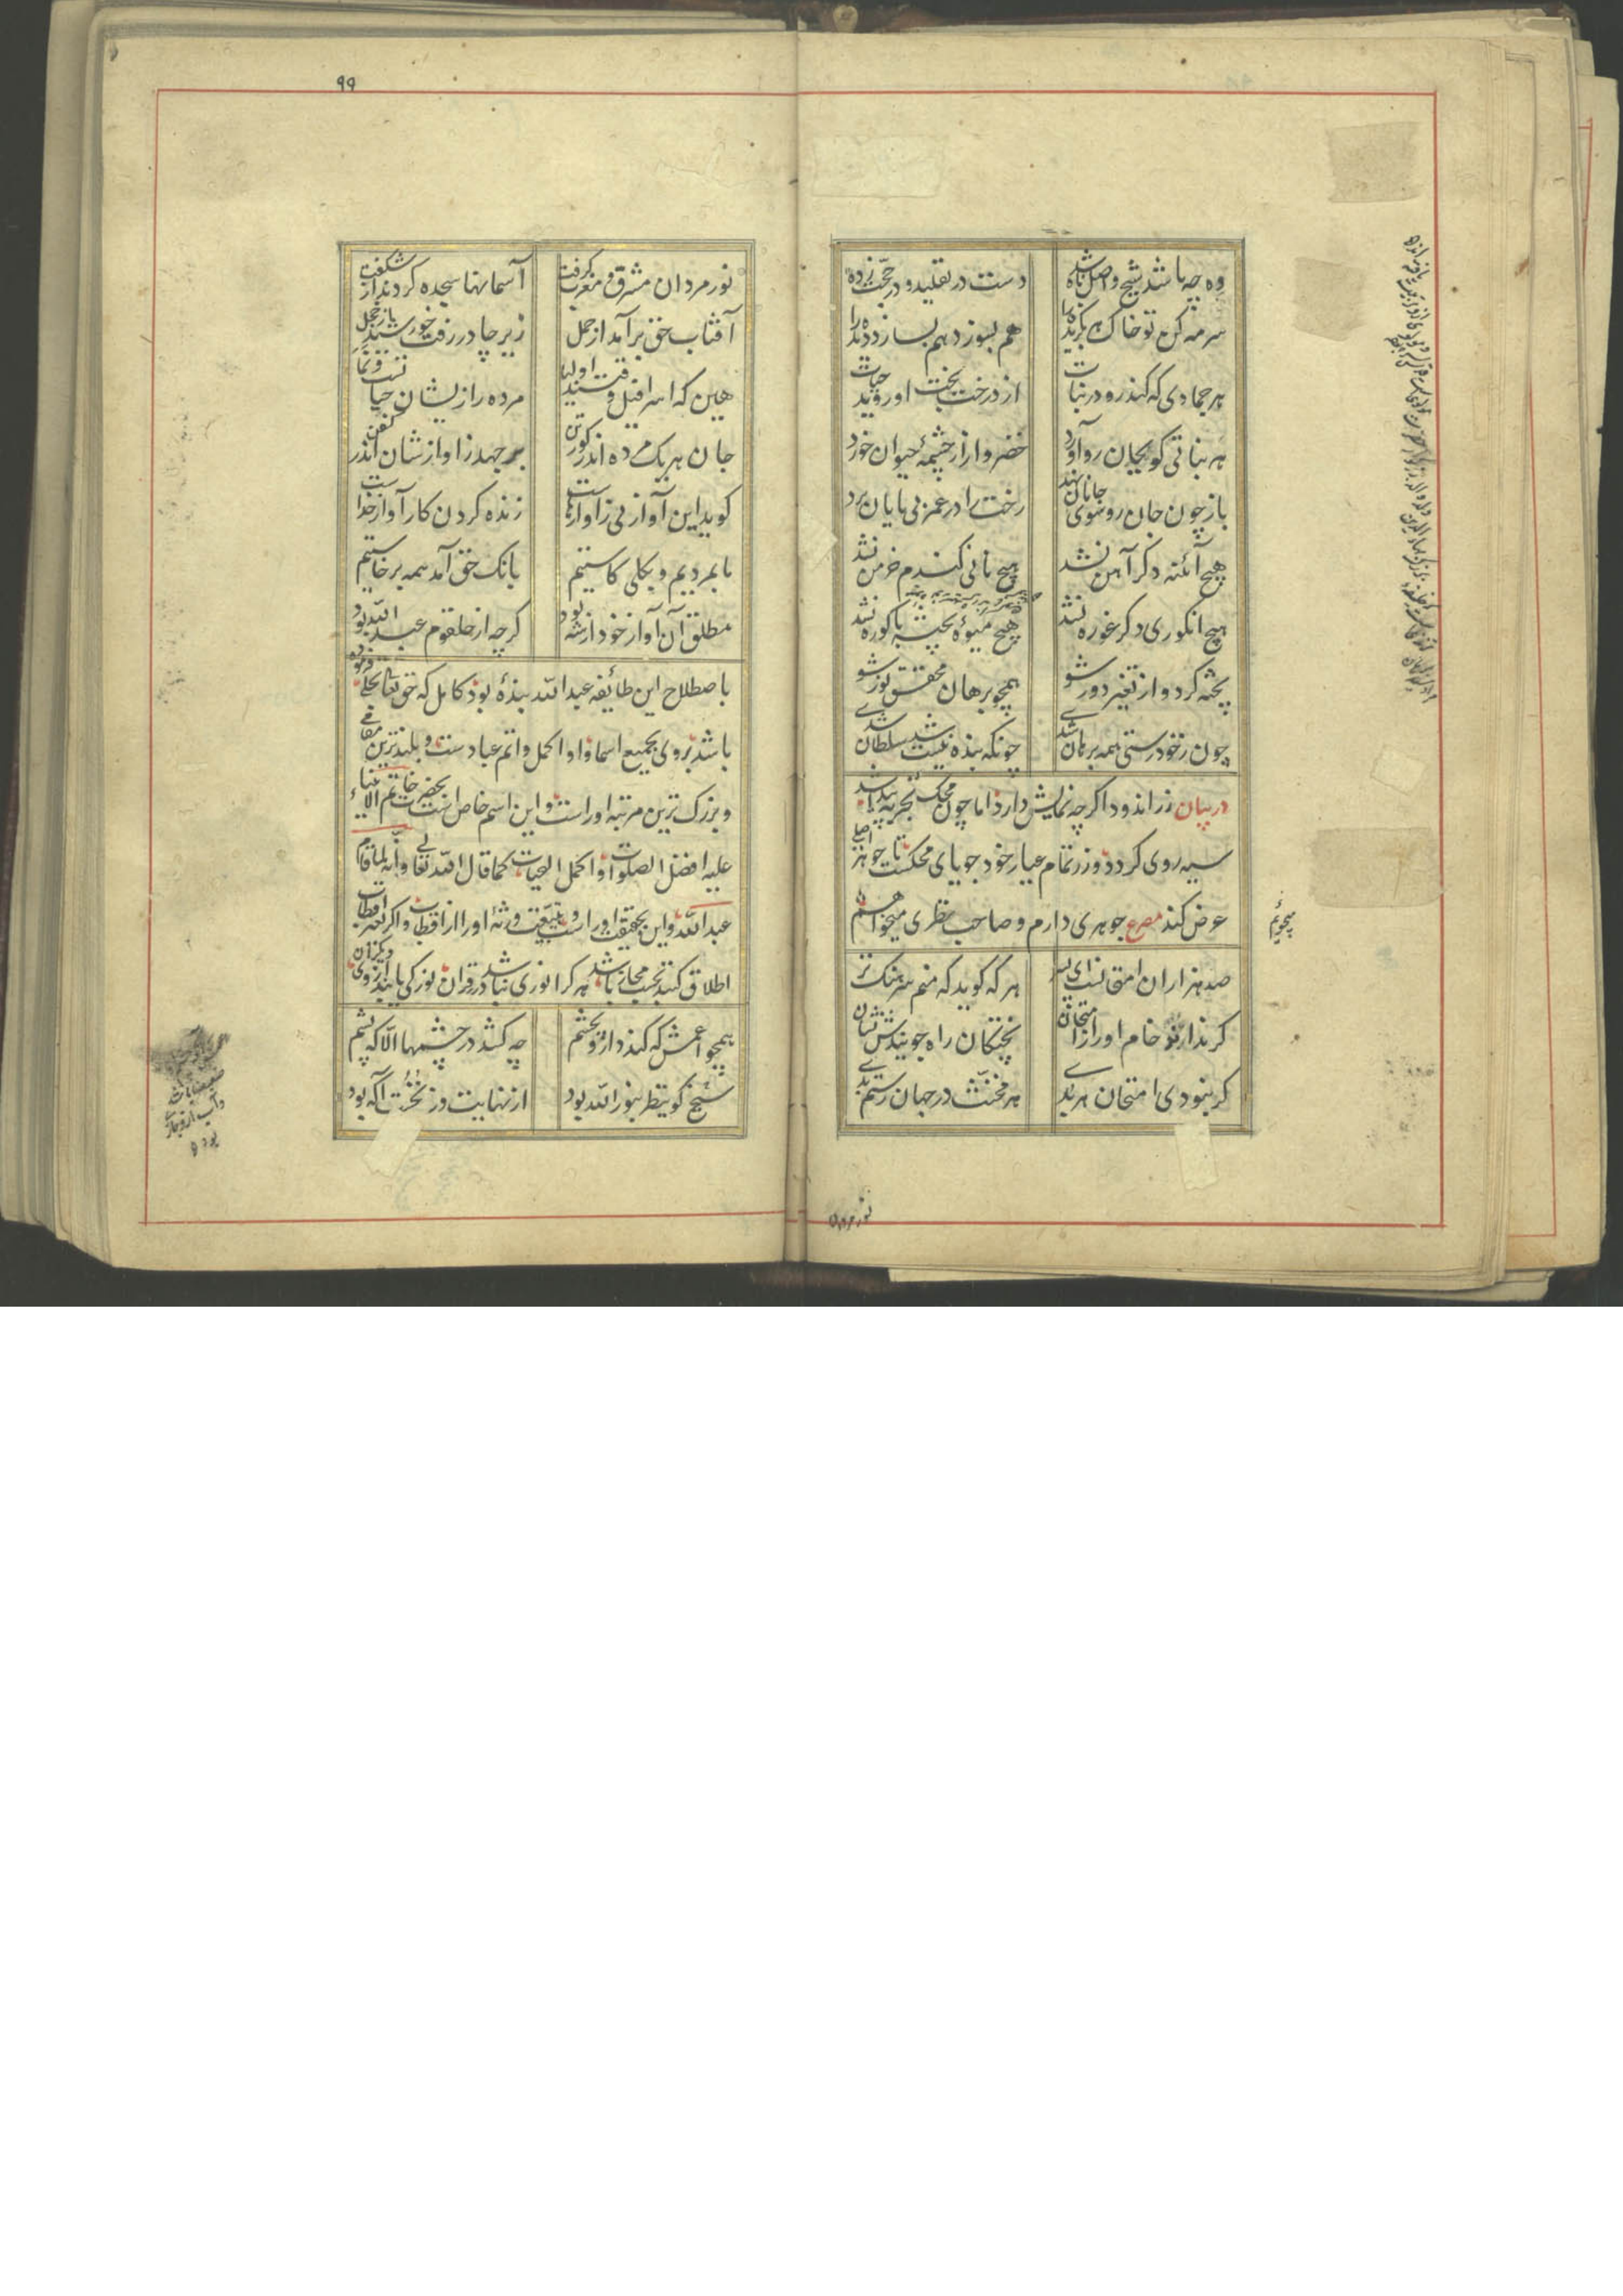 وه چه باشد شیخ واصل ناشده دست در تقلید و در حجت زده
سرمه کن تو خاک هر بگزیده را هم بسوزد هم بسازد دیده را
هر جمادی که کند رو در نبات از درخت بخت او روید حیات
هر نباتی کو بجان رو آورد خضروار از چشمهٔ حیوان خورد
باز چون جان رو سوی جانان نهد رخت را در عمر بی پایان برد
هیچ آئنه دگر آهن نشد هیچ نانی گندم خرمن نشد
هیچ انگوری دگر غوره نشد هیچ میوهٔ پخته باکوره نشد
پخته گرد و از تغیر دور شو همچو برهان محقق نور شو
چون ز خود رستی همه برهان شدی چونکه بنده نیست شد سلطان شدی
در بیان زر اندود اگرچه نمایش دارد اما چون محک تجربه پیدا شد
سیه روی گردد و زر تمام عیار خود جویای محکست تا جوهر اصلی
عرض کند مصرع جوهری دارم و صاحب نظری میخواهم
میجویم
صد هزاران امتحانست ای پسر هر که گوید که منم سرهنگ در
گر نداند تو خام او را ز امتحان پختگان راه جویندش نشان
گر نبودی امتحان هر بدی هر مخنث در جهان رستم بدی
نور مردان
۹۹
نور مردان مشرق و مغرب گرفت آسمانها سجده کردند از شگفت
آفتاب حق برآمد از حمل زیر چادر رفت خورشید از خجل
هین که اسرافیل وقتند اولیا مرده را زیشان حیاتست و نما
جان هر یک مرده اندر گور تن بر جهد ز آوازشان اندر کفن
گوید این آواز نی ز آوازهاست زنده کردن کار آواز خداست
ما بمردیم و بکلی کاستیم بانک حق آمد همه برخاستیم
مطلق آن آواز خود از شه بود گرچه از حلقوم عبد الله بود
باصطلاح این طائفه عبد الله بندهٔ بود کامل که حق تعالی تجلی فرموده
باشد بر وی بجمیع اسما و او اکمل و اتم عباد ست و بلندترین مقامی
و بزرگ ترین مرتبه او راست و این اسم خاص است بحضرت خاتم الانبیاء
علیه افضل الصلوات و اکمل التحیات کما قال الله تعالی و انه لما قام
عبد الله و این بحقیقت او راست و بتبعیت ورثهٔ او را از اقطاب و اگر بغیر اقطاب
اطلاق کنند بحسب مجاز باشد هر کرا نوری نباشد در قران نور کی یابد از روی دیگران
همچو اعمش که کند دارو بچشم چه کشد در چشمها الا که یشم
شیخ کو ینظر بنور الله بود از نهایت وز نخست آگه بود